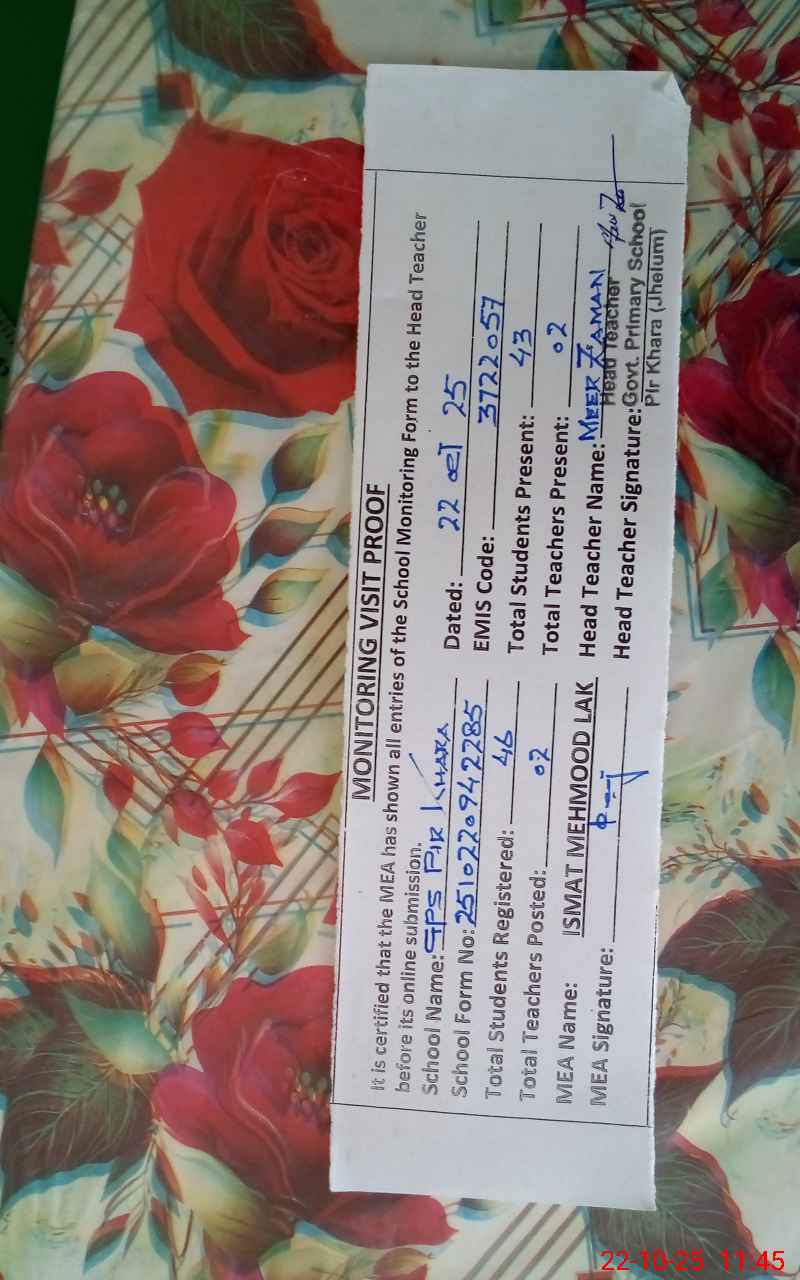 MONITORING VISIT PROOF
It is certified that the MEA has shown all entries of the School Monitoring Form to the Head Teacher
before its online submission.
School Name: GPS PIR KHARA Dated: 22 OCT 25
School Form No: 2510220942285 EMIS Code: 37220057
Total Students Registered: 46 Total Students Present: 43
Total Teachers Posted: 02 Total Teachers Present: 02
MEA Name: ISMAT MEHMOOD LAK Head Teacher Name: MEER ZAMAN
MEA Signature: Head Teacher Signature:
Head Teacher
Govt. Primary School
Pir Khara (Jhelum)
22-10-25 11:45